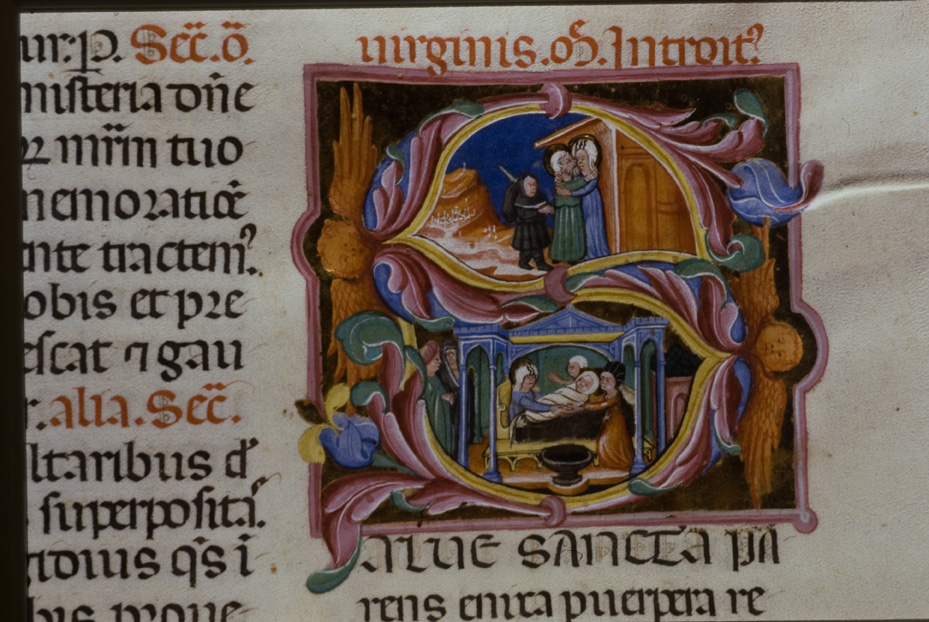 ur. p. Sec̄. ō.
nisteria dn̄e
ꝝ mr̄m tuo
nemoratiōe
nte tractem᾽.
obis et pre
escat ⁊ gau
r. alia. Sec̄.
ltaribus d᾽
superposita᾽.
gidius qs̄ i
bis proue
uirginis. Introit᾽
SALUE SANCTA PA
rens enixa puerpera re